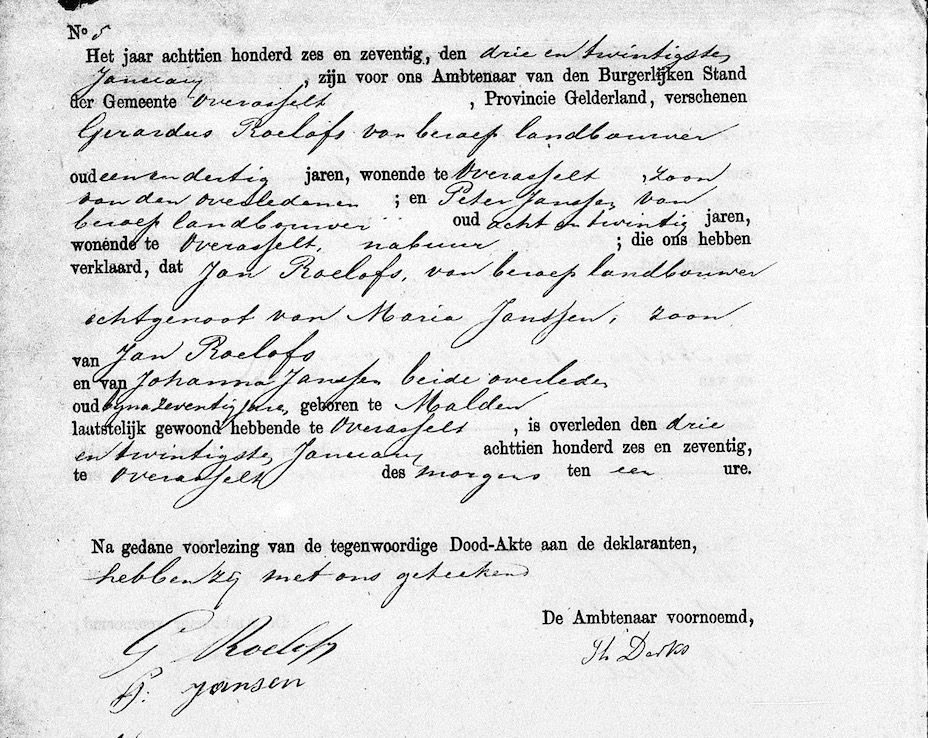 No 5
Het jaar achttien honderd zes en zeventig, den drie en twintigsten
January , zijn voor ons Ambtenaar van den Burgerlijken Stand
der Gemeente Overasselt , Provincie Gelderland, verschenen
Gerardus Roelofs van beroep landbouwer
oud een en dertig jaren, wonende te Overasselt , zoon
van den overledenen ; en Peter Janssen van
beroep landbouwer oud acht en twintig jaren,
wonende te Overasselt, nabuur ; die ons hebben
verklaard, dat Jan Roelofs, van beroep landbouwer
echtgenoot van Maria Janssen, zoon
van Jan Roelofs
en van Johanna Janssen beide overleden
oud byna zeventig jare, geboren te Malden
laatstelijk gewoond hebbende te Overasselt , is overleden den drie
en twintigsten January achttien honderd zes en zeventig,
te Overasselt des morgens ten een ure.
Na gedane voorlezing van de tegenwoordige Dood-Akte aan de deklaranten,
hebben zy met ons geteekend
De Ambtenaar voornoemd,
G Roelofs
Th Derks
P. Jansen